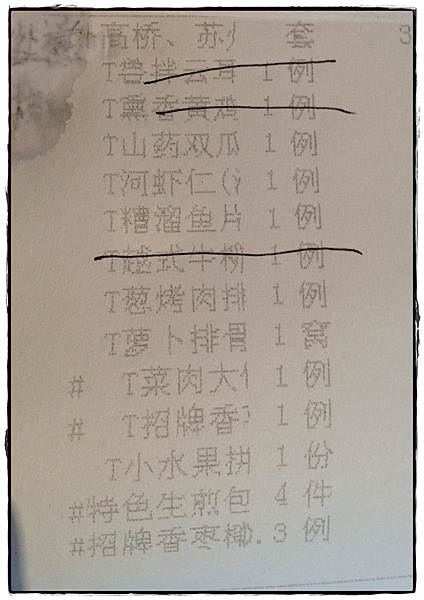 高桥、苏 套 3
T拌云耳 1 例
T熏香黄鸡 1 例
T山药双瓜 1 例
T河虾仁( 1 例
T糟溜鱼片 1 例
T越式牛柳 1 例
T葱烤肉排 1 例
T萝卜排骨 1 窝
# T菜肉大 1 例
# T招牌香 1 例
T小水果拼 1 份
#特色生煎包 4 件
#招牌香枣椰.3 例